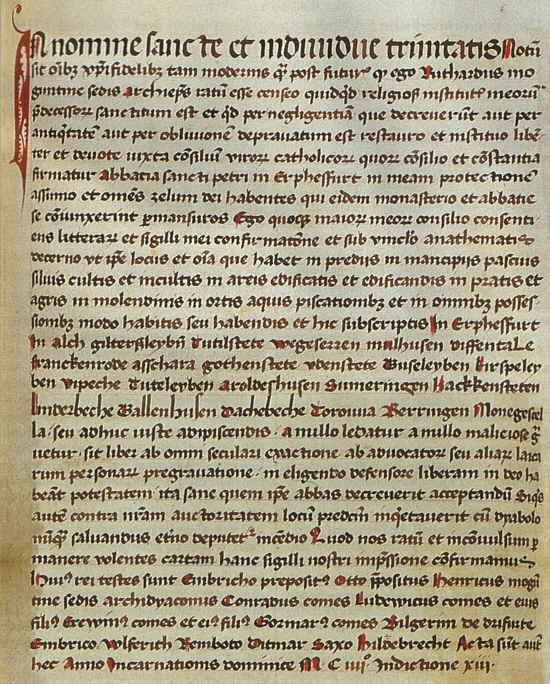 In nomine sancte et individue trinitatis Notū
sit oībꝫ xp̄ifidelibꝫ tam modernis qͣ̄ post futur᷑ qͥ ego Ruthardus mo
guntine sedis archiep̄s ratū esse censeo quidqͥd religiosꝭ institutꝭ meorūͫ
p̄decessorꝝ sanctitum est et qͥd per negligentiā que decreverūt aut per
antiqͥtatē aut per oblivionē depravatum est restauro et instituo libēͬ
ter et devote iuxta cōsiliū virorꝝ catholicorꝝ quorꝝ cōsilio et cōstantia
firmatur Abbacia sancti petri in Erphessfurt in meam protectionē
assumo et omēs zelum dei habentes qui eidem monasterio et abbatie
se cōiunxerint ꝑmansuros Ego quoqꝫ maiorꝝ meorꝝ consilio consenti
ens litterarꝝ et sigilli mei confirmatōne et sub vinclo anathematis
decerno vt ip̄e locus et oīa que habet in predijs in mancipijs pascius
siluis cultis et incultis in areis edificatis et edificandis in pratis et
agris in molendinis in ortis aquis piscationibꝫ et in omnibꝫ posses
sionibꝫ modo habitis seu habendis et hic subscriptis In Erphessfurt
In alch giltersleybn̄ Tutilstete wegeserren mulhusen diffentale
franckenrode asschara gothenstete vdenstete Buseleyben Eirspeley
ben vipeche Tuteleyben aroldeshusen Sumeringen Hackkensteten
Linderbeche Ballenhusen Dachebeche Torouua Berringen Monegescel
la. seu adhuc iuste adipiscendis. a nullo ledatur a nullo maliciose gͣ
uetur. sit liber ab omni seculari exactione ab advocatorꝝ seu aliarꝝ laica
rum personarꝝ pregravatione. in eligendo defensore liberam in deo ha
beāt potestatem ita sane quem ip̄e abbas decreverit acceptandū Siqͥs
autē contra nr̄am auctoritatem locū predcm̄ inqͥetaverit cū dyabolo
nūqͣ̄ saluandus et̄no deputetͬ incēdio Quod nos ratū et incōuulsum ꝑ
manere volentes cartam hanc sigilli nostri imp̄ssione cōfirmamus
Huius rei testes sunt Embricho prepositꝰ Otto p̄positus Henricus mogū
tine sedis archidyaconus Conradus comes Ludewicus comes et eiꝰ
filiꝰ Erewinꝰ comes et eiꝰ filiꝰ Gozmarꝰ comes Bilgerim de drifurte
Embrico wlferich Remboto Ditmar Saxo Hildebrecht Acta sūt autē
hec Anno Incarnationis dominice M C iiijº Indictione xiii.